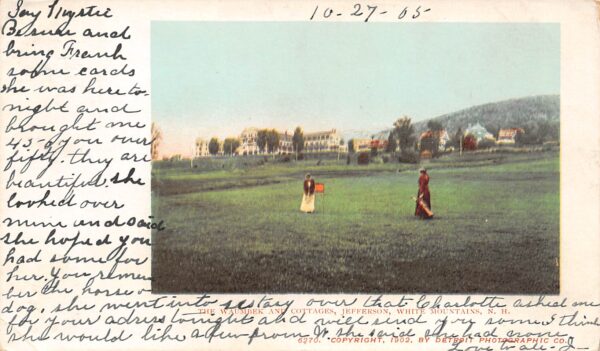 10-27-05
Say Mystic
Besure and
bring Frank
some cards
she was here to-
night and
brought me
45-6 you our
fifty. they are
beautiful. she
looked over
mine and said
she hoped you
had some for
her. you remem
ber the horse
dog, she went into over that Charlotte asked me
for your adress tonight and will send you some I think
she would like a few from she said she had
Love to all
THE WAUMBEK AND COTTAGES, JEFFERSON, WHITE MOUNTAINS, N. H.
6270. COPYRIGHT, 1902, BY DETROIT PHOTOGRAPHIC CO.